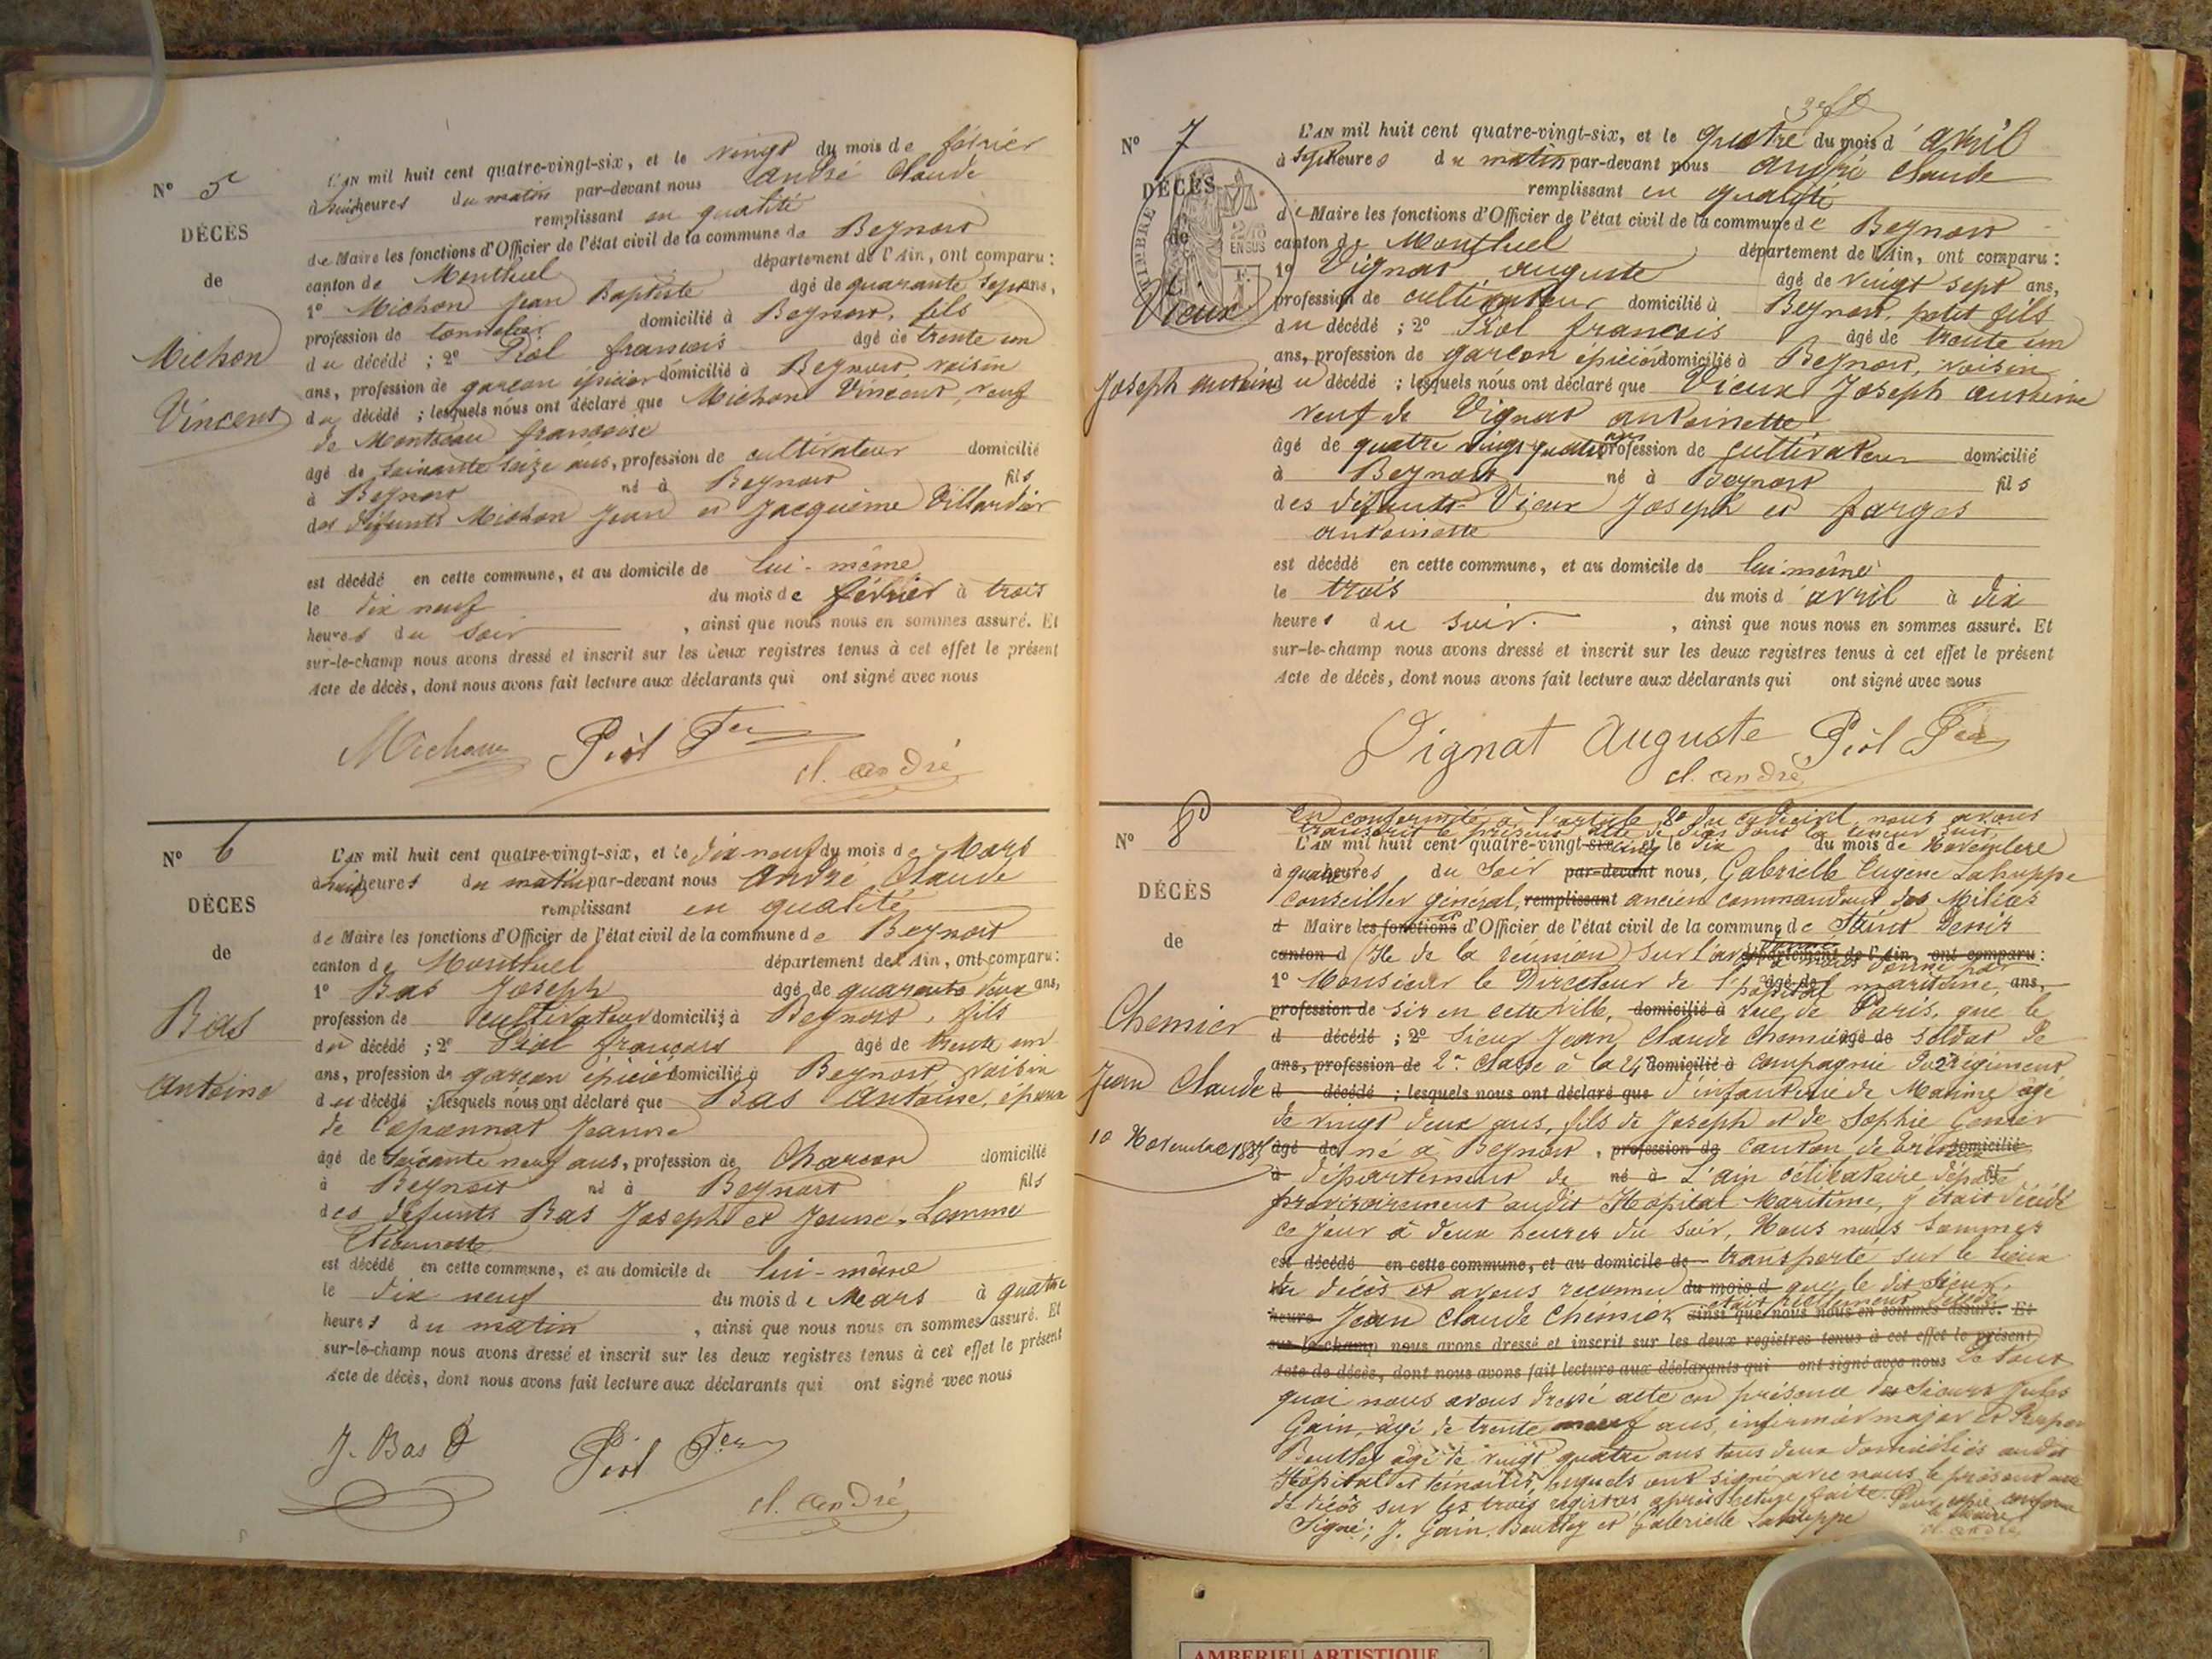 N° 5
DÉCÈS
de
Michon
Vincent
L'AN mil huit cent quatre-vingt-six, et le vingt du mois de février
à huit heures du matin par-devant nous André Claude
remplissant en qualité
de Maire les fonctions d'Officier de l'état civil de la commune de Beynost
canton de Montluel département de l'Ain, ont comparu :
1° Michon Jean Baptiste âgé de quarante sept ans,
profession de tonnelier domicilié à Beynost, fils
du décédé ; 2° Piol françois âgé de trente un
ans, profession de garçon épicier domicilié à Beynost voisin
du décédé ; lesquels nous ont déclaré que Michon Vincent, veuf
de françoise
âgé de soixante seize ans, profession de cultivateur domicilié
à Beynost né à Beynost fils
des défunts Michon Jean et Jacquême Villardier
est décédé en cette commune, et au domicile de lui-même
le dix neuf du mois de février à trois
heures du soir , ainsi que nous nous en sommes assuré. Et
sur-le-champ nous avons dressé et inscrit sur les deux registres tenus à cet effet le présent
Acte de décès, dont nous avons fait lecture aux déclarants qui ont signé avec nous
Michon Piol Fçois
cl. andré
N° 6
DÉCES
de
Bas
Antoine
L'AN mil huit cent quatre-vingt-six, et le dix neuf du mois de Mars
à huit heures du matin par-devant nous André Claude
remplissant en qualité
de Maire les fonctions d'Officier de l'état civil de la commune de Beynost
canton de Montluel département de l'Ain, ont comparu :
1° Bas Joseph âgé de quarante deux ans,
profession de cultivateur domicilié à Beynost, fils
du décédé ; 2° Piol françois âgé de trente un
ans, profession de garçon épicier domicilié à Beynost voisin
du décédé ; lesquels nous ont déclaré que Bas Antoine, époux
de Jeanne
âgé de soixante neuf ans, profession de Charron domicilié
à Beynost né à Beynost fils
des défunts Bas Joseph et Jeanne
est décédé en cette commune, et au domicile de lui-même
le dix neuf du mois de Mars à quatre
heures du matin , ainsi que nous nous en sommes assuré. Et
sur-le-champ nous avons dressé et inscrit sur les deux registres tenus à cet effet le présent
Acte de décès, dont nous avons fait lecture aux déclarants qui ont signé avec nous
J. Bas Piol Fçois
cl. andré
N° 7
DÉCÈS
de
Vieux
Joseph antoine
TIMBRE
EN SUS
L'AN mil huit cent quatre-vingt-six, et le quatre du mois d'avril
à sept heures du matin par-devant nous André Claude
remplissant en qualité
de Maire les fonctions d'Officier de l'état civil de la commune de Beynost
canton de Montluel département de l'Ain, ont comparu :
1° Vignat auguste âgé de vingt sept ans,
profession de cultivateur domicilié à Beynost, petit fils
du décédé ; 2° Piol françois âgé de trente un
ans, profession de garçon épicier domicilié à Beynost, voisin
du décédé ; lesquels nous ont déclaré que Vieux Joseph antoine
veuf de Vignat antoinette
âgé de quatre vingt quatre ans profession de cultivateur domicilié
à Beynost né à Beynost fils
des défunts Vieux Joseph et farges
antoinette
est décédé en cette commune, et au domicile de lui même
le trois du mois d'avril à dix
heures du soir. , ainsi que nous nous en sommes assuré. Et
sur-le-champ nous avons dressé et inscrit sur les deux registres tenus à cet effet le présent
Acte de décès, dont nous avons fait lecture aux déclarants qui ont signé avec nous
Vignat Auguste Piol Fçois
cl. andré
N° 8
DÉCÈS
de
Chemier
Jean Claude
10 Novembre 1885
En conformité à l'article 80 du code civil, nous avons
transcrit le présent acte de décès dont la teneur suit,
L'AN mil huit cent quatre-vingt-six cinq et le dix du mois de Novembre
à quatre heures du soir par-devant nous, Gabrielle Eugène Lahuppe
Conseiller général, remplissant ancien commandant des Milices
d Maire les fonctions et d'Officier de l'état civil de la commune de Saint Denis
canton d (Ile de la réunion) sur l'avis à nous donné par département de l'Ain, ont comparu :
1° Monsieur le Directeur de l'hôpital âgé de maritime, ans,
profession de sis en cette ville, domicilié à rue de Paris, que le
d décédé ; 2° sieur Jean Claude Chemier âgé de soldat de
ans, profession de 2e classe à la 24 domicilié à compagnie du 2 régiment
d décédé ; lesquels nous ont déclaré que d'infanterie de Marine âgé
de vingt deux ans, fils de Joseph et de Sophie
âgé de né à Beynost, profession de canton de domicilié
à département de né à l'ain célibataire fils
provisoirement audit Hôpital Maritime, y était décédé
ce jour à deux heures du soir, Nous nous sommes
est décédé en cette commune, et au domicile de transporté sur le lieu
du décès et avons reconnu du mois d que le dit sieur
heure Jean Claude Chemier était réellement décédé ainsi que nous nous en sommes assuré. Et
sur-le-champ nous avons dressé et inscrit sur les deux registres tenus à cet effet le présent
Acte de décès, dont nous avons fait lecture aux déclarants qui ont signé avec nous De tout
quoi nous avons dressé acte en présence des sieurs Jules
Gain, âgé de trente neuf ans, infirmier major et
Bouttey âgé de vingt quatre ans tous deux domiciliés audit
Hôpital et témoins, lesquels ont signé avec nous le présent acte
de décès sur les trois registres après lecture faite. Pour copie conforme
Signé : J. Gain, Bouttey et Gabrielle Lahuppe le Maire
cl. andré
AMBERIEU ARTISTIQUE